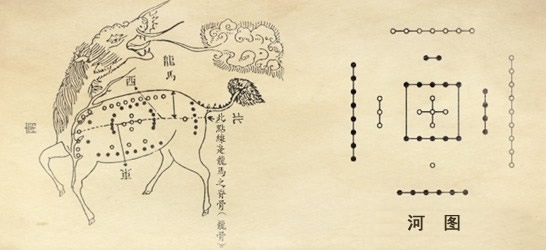 龍馬
西
南
北
東
此點線是龍馬之脊骨(龍骨)
河 图